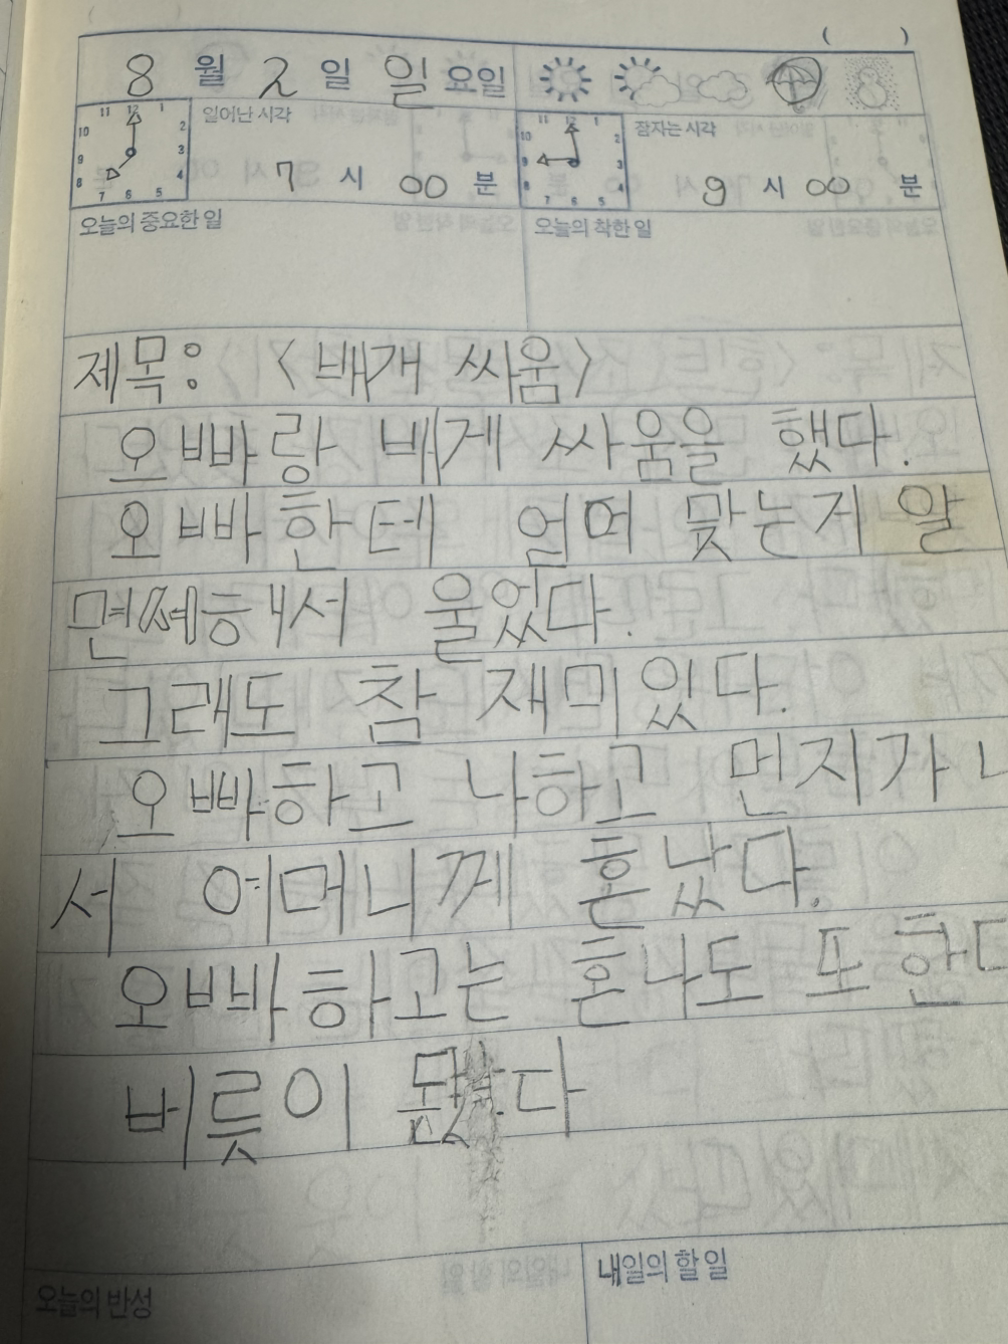 ( )
8 월 2 일 일 요일
일어난 시각 잠자는 시각
7 시 00 분 9 시 00 분
오늘의 중요한 일 오늘의 착한 일
제목: <배개 싸움>
오빠랑 베게 싸움을 했다.
오빠한테 얻어 맞는게 알
면쩨해서 울었다.
그래도 참 재미있다.
오빠하고 나하고 먼지가 나
서 어머니께 혼났다.
오빠하고는 혼나도 또 한다
버릇이 다
오늘의 반성 내일의 할 일